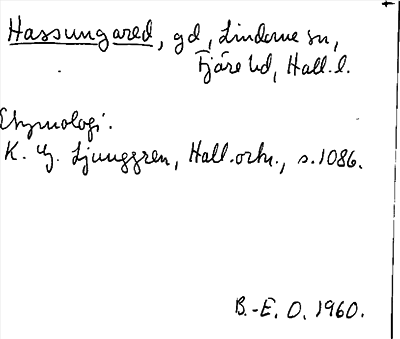 Hassungared, gd, Lindome sn,
Fjäre hd, Hall. l.
Etymologi.
K. G. Ljunggren, Hall. ortn., s. 1086.
B.-E. O. 1960.